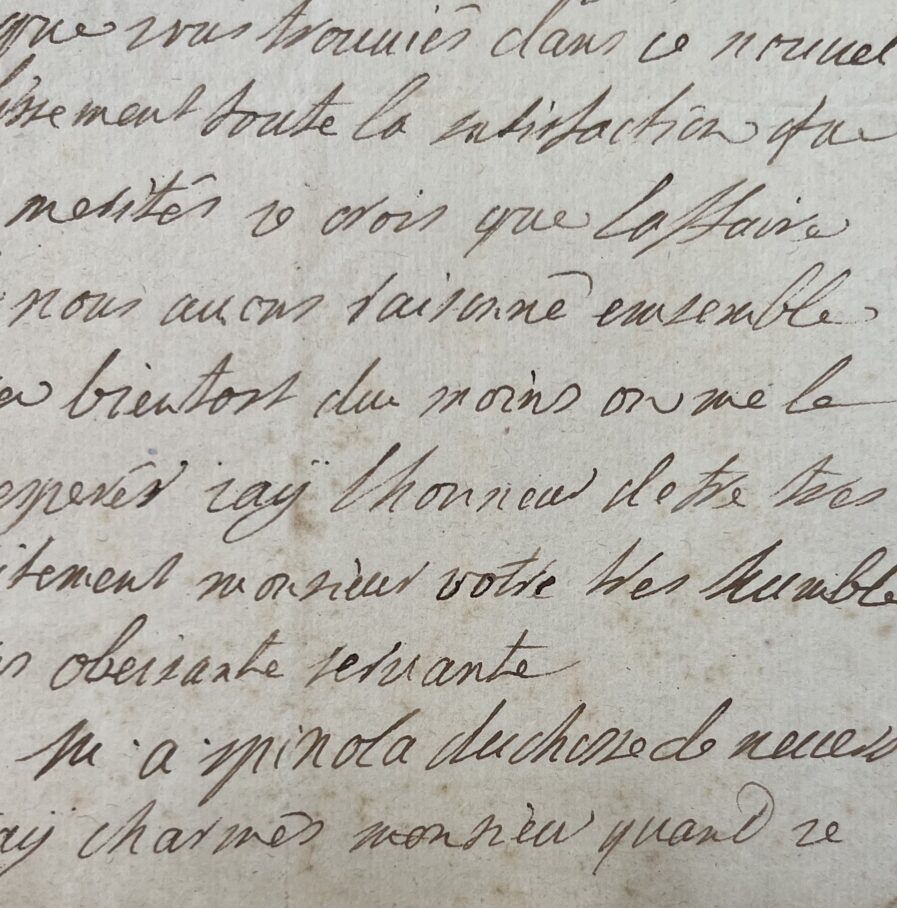 que vous trouuiés dans ce nouuel
lissement toute la satisfaction que
merités ie crois que laffaire
nous auons raisonné ensemble
bientost du moins on me le
esperér iaÿ lhonneur detre tres
itement monsieur votre tres humble
obeissante seruante
m · a · spinola duchesse de neuers
aÿ charmés monsieur quand ie